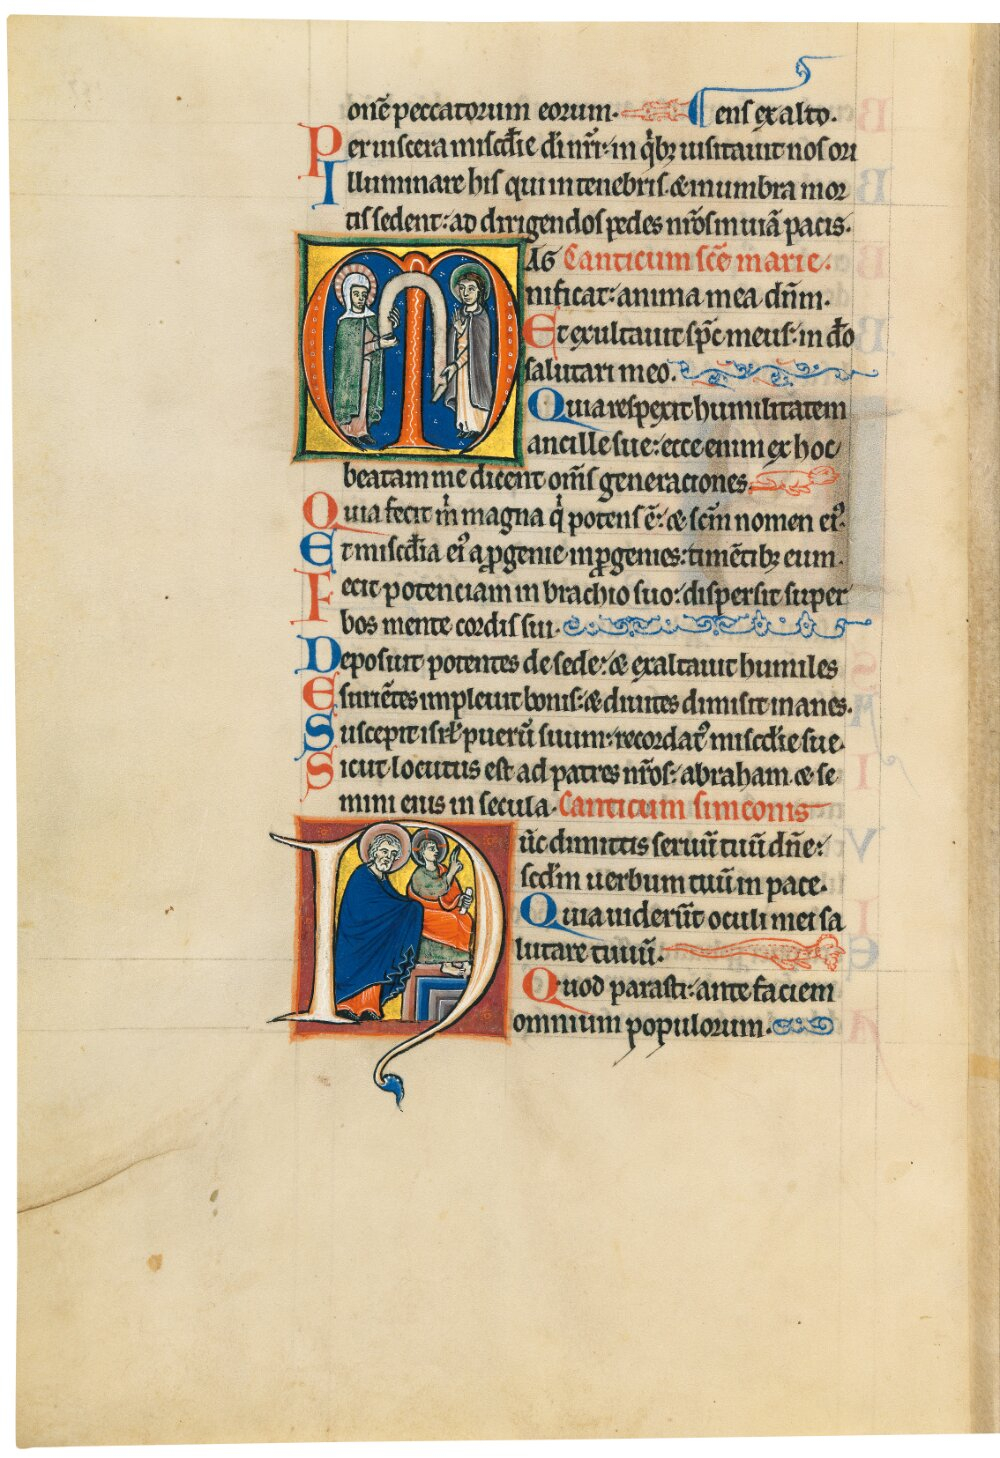 onē peccatorum eorum. Ens ex alto.
Per uiscera miscdie di nri: in qibz uisitauit nos ori
Illuminare his qui in tenebris & in umbra mor
tis sedent: ad dirigendos pedes nros in uiā pacis.
MAG Canticum scē marie.
nificat: anima mea dnm.
Et exultauit spc meus: in do
salutari meo.
Quia respexit humilitatem
ancille sue: ecce enim ex hoc
beatam me dicent oms generaciones
Quia fecit m̍ magna q̍ potens ē: & scm nomen ei᾽.
Et miscdia ei᾽ a ꝓgenie in ꝓgenies: timētibz eum.
Fecit potenciam in brachio suo: dispersit super
bos mente cordis sui.
Deposuit potentes de sede: & exaltauit humiles
Esuriētes impleuit bonis: & diuites dimisit inanes.
Suscepit isrl puerū suum: recordat᾽ miscdie sue
Sicut locutus est ad patres nros: abraham & se
mini eius in secula. Canticum simeonis
Nūc dimittis seruū tuū dne:
scdm uerbum tuū in pace.
Quia uiderūt oculi mei sa
lutare tuuū.
Quod parasti: ante faciem
omnium populorum.